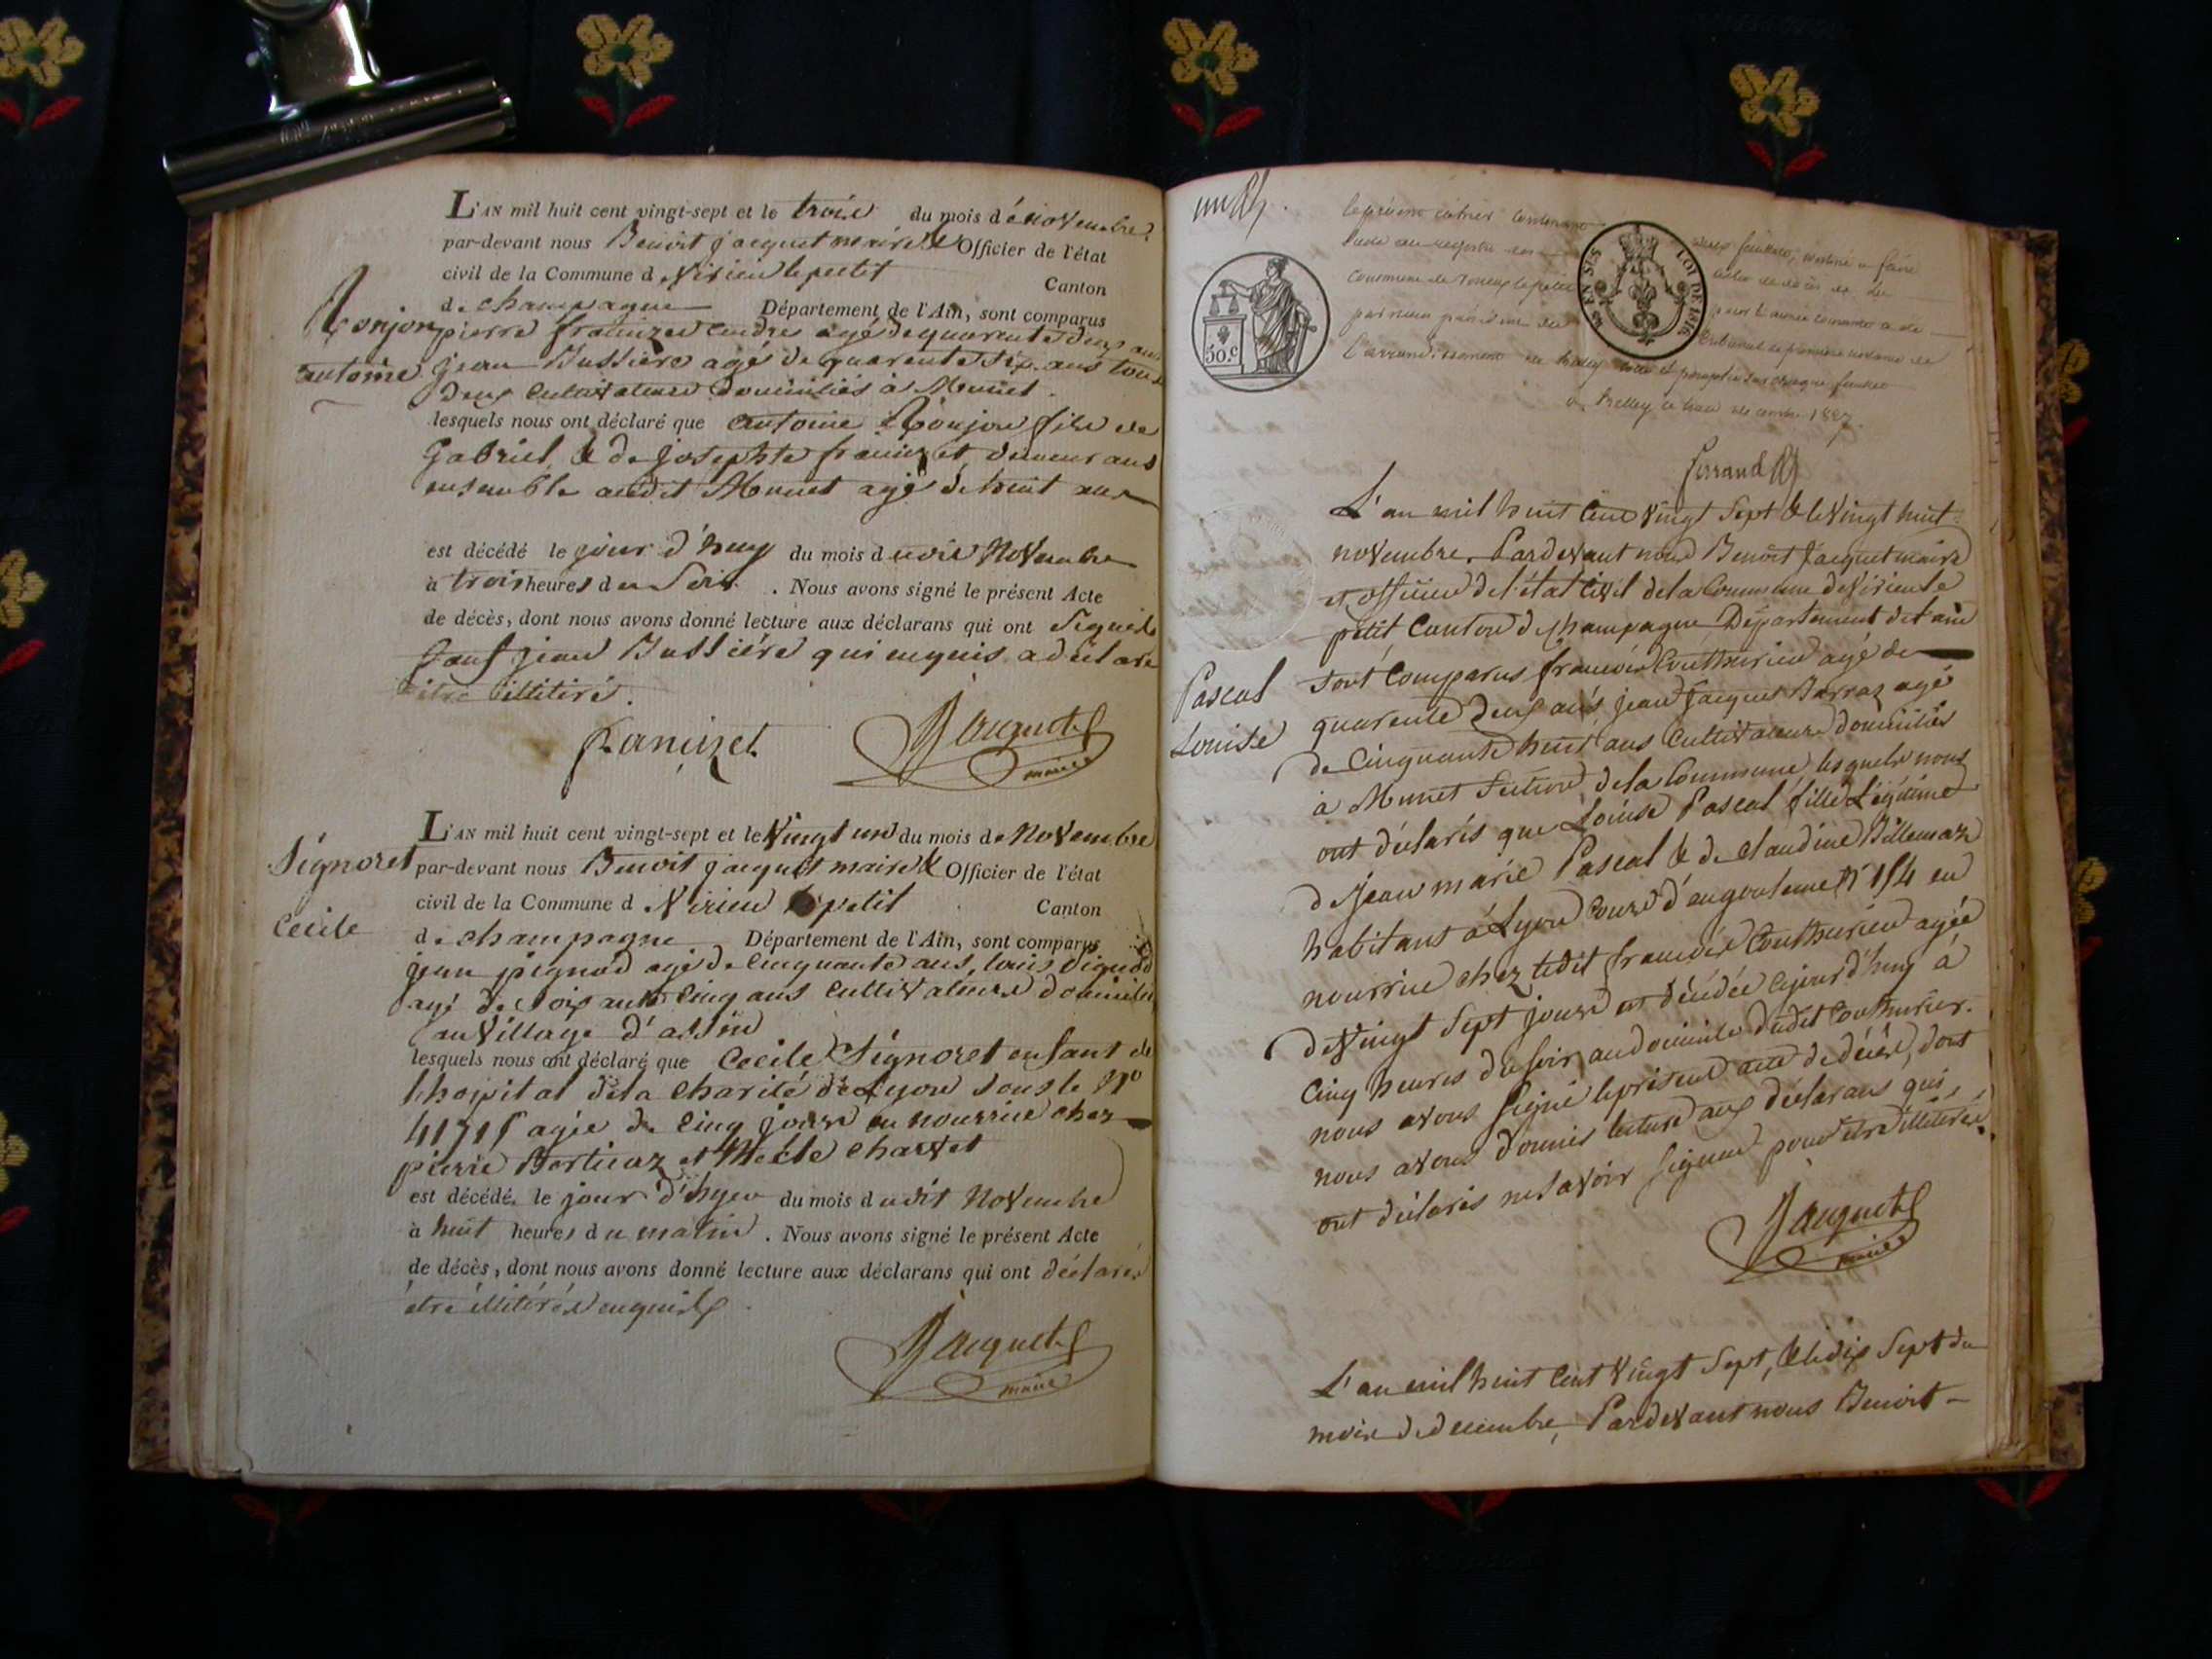 L'AN mil huit cent vingt-sept et le trois du mois de novembre
par-devant nous Benoit jacquet maire & Officier de l'état
civil de la Commune d Virieu le petit Canton
de champagne Département de l'Ain, sont comparus
pierre francizet cendre agé de quarente deux ans
antoine
jean Bussiére agé de quarente six ans tous
deux cultivateurs domiciliés à Munet
lesquels nous ont déclaré que antoine fils de
Gabriel & de Josephte francizet demeurans
ensemble audit Munet agé de huit ans
est décédé le jour d'huy du mois d novembre
à trois heures du soir. Nous avons signé le présent Acte
de décès, dont nous avons donné lecture aux déclarans qui ont signé
sauf jean Bussiére qui enquis a déclaré
être illitiré.
francizet Jacquet
maire
L'AN mil huit cent vingt-sept et le vingt un du mois de novembre
Signoret
par-devant nous Benoit jacquet maire & Officier de l'état
civil de la Commune d Virieu le petit Canton
Cecile
de champagne Département de l'Ain, sont comparus
jean pignod agé de cinquante ans, louis
agé de soixante cinq ans cultivateurs domiciliés
au village d'assin
lesquels nous ont déclaré que Cecile Signoret enfant de
lhopital de la charité de Lyon sous le N°
agée de cinq jours en nourrice chez
pierre Bertieaz et charvet
est décédé le jour d'hyer du mois dudit novembre
à huit heures du matin. Nous avons signé le présent Acte
de décès, dont nous avons donné lecture aux déclarans qui ont déclarés
étre illitérés enquis
Jacquet
maire
le présent cahier contenant deux feuillets, destiné à faire
suite au registre des actes de décès de la
commune de le petit pour l'année courante a été
par nous président du tribunal de première instance de
l'arrondissement de belley coté et paraphé sur chaque feuillet
à Belley le 1827.
50.c
LOI DE 1816
L'an mil huit cent vingt sept & le vingt huit
novembre. Pardevant nous Benoit Jacquet maire
et officier de l'état civil de la Commune de Virieu le
petit Canton de champagne Département de l'ain
Pascal
sont comparus francois Couthurier agé de
quarente deux ans, jean jacques Barraz agé
Louise
de cinquante huit ans cultivateurs domiciliés
à Munet section de la Commune lesquels nous
ont déclarés que Louise Pascal fille légitime
de jean marie Pascal & de claudine Billemaz
habitans à Lyon cours d'angouleme N° 154 en
nourrice chez ledit francois Couthurier agée
de vingt sept jours est décédée cejour d'huy à
cinq heures du soir au domicile dudit Couthurier.
nous avons signé le présent acte de décès, dont
nous avons donnés lecture aux déclarans qui
ont déclarés ne savoir signer pour étre illitérés.
Jacquet
maire
L'an mil huit cent vingt sept, & le dix sept du
mois de decembre, Pardevant nous Benoit